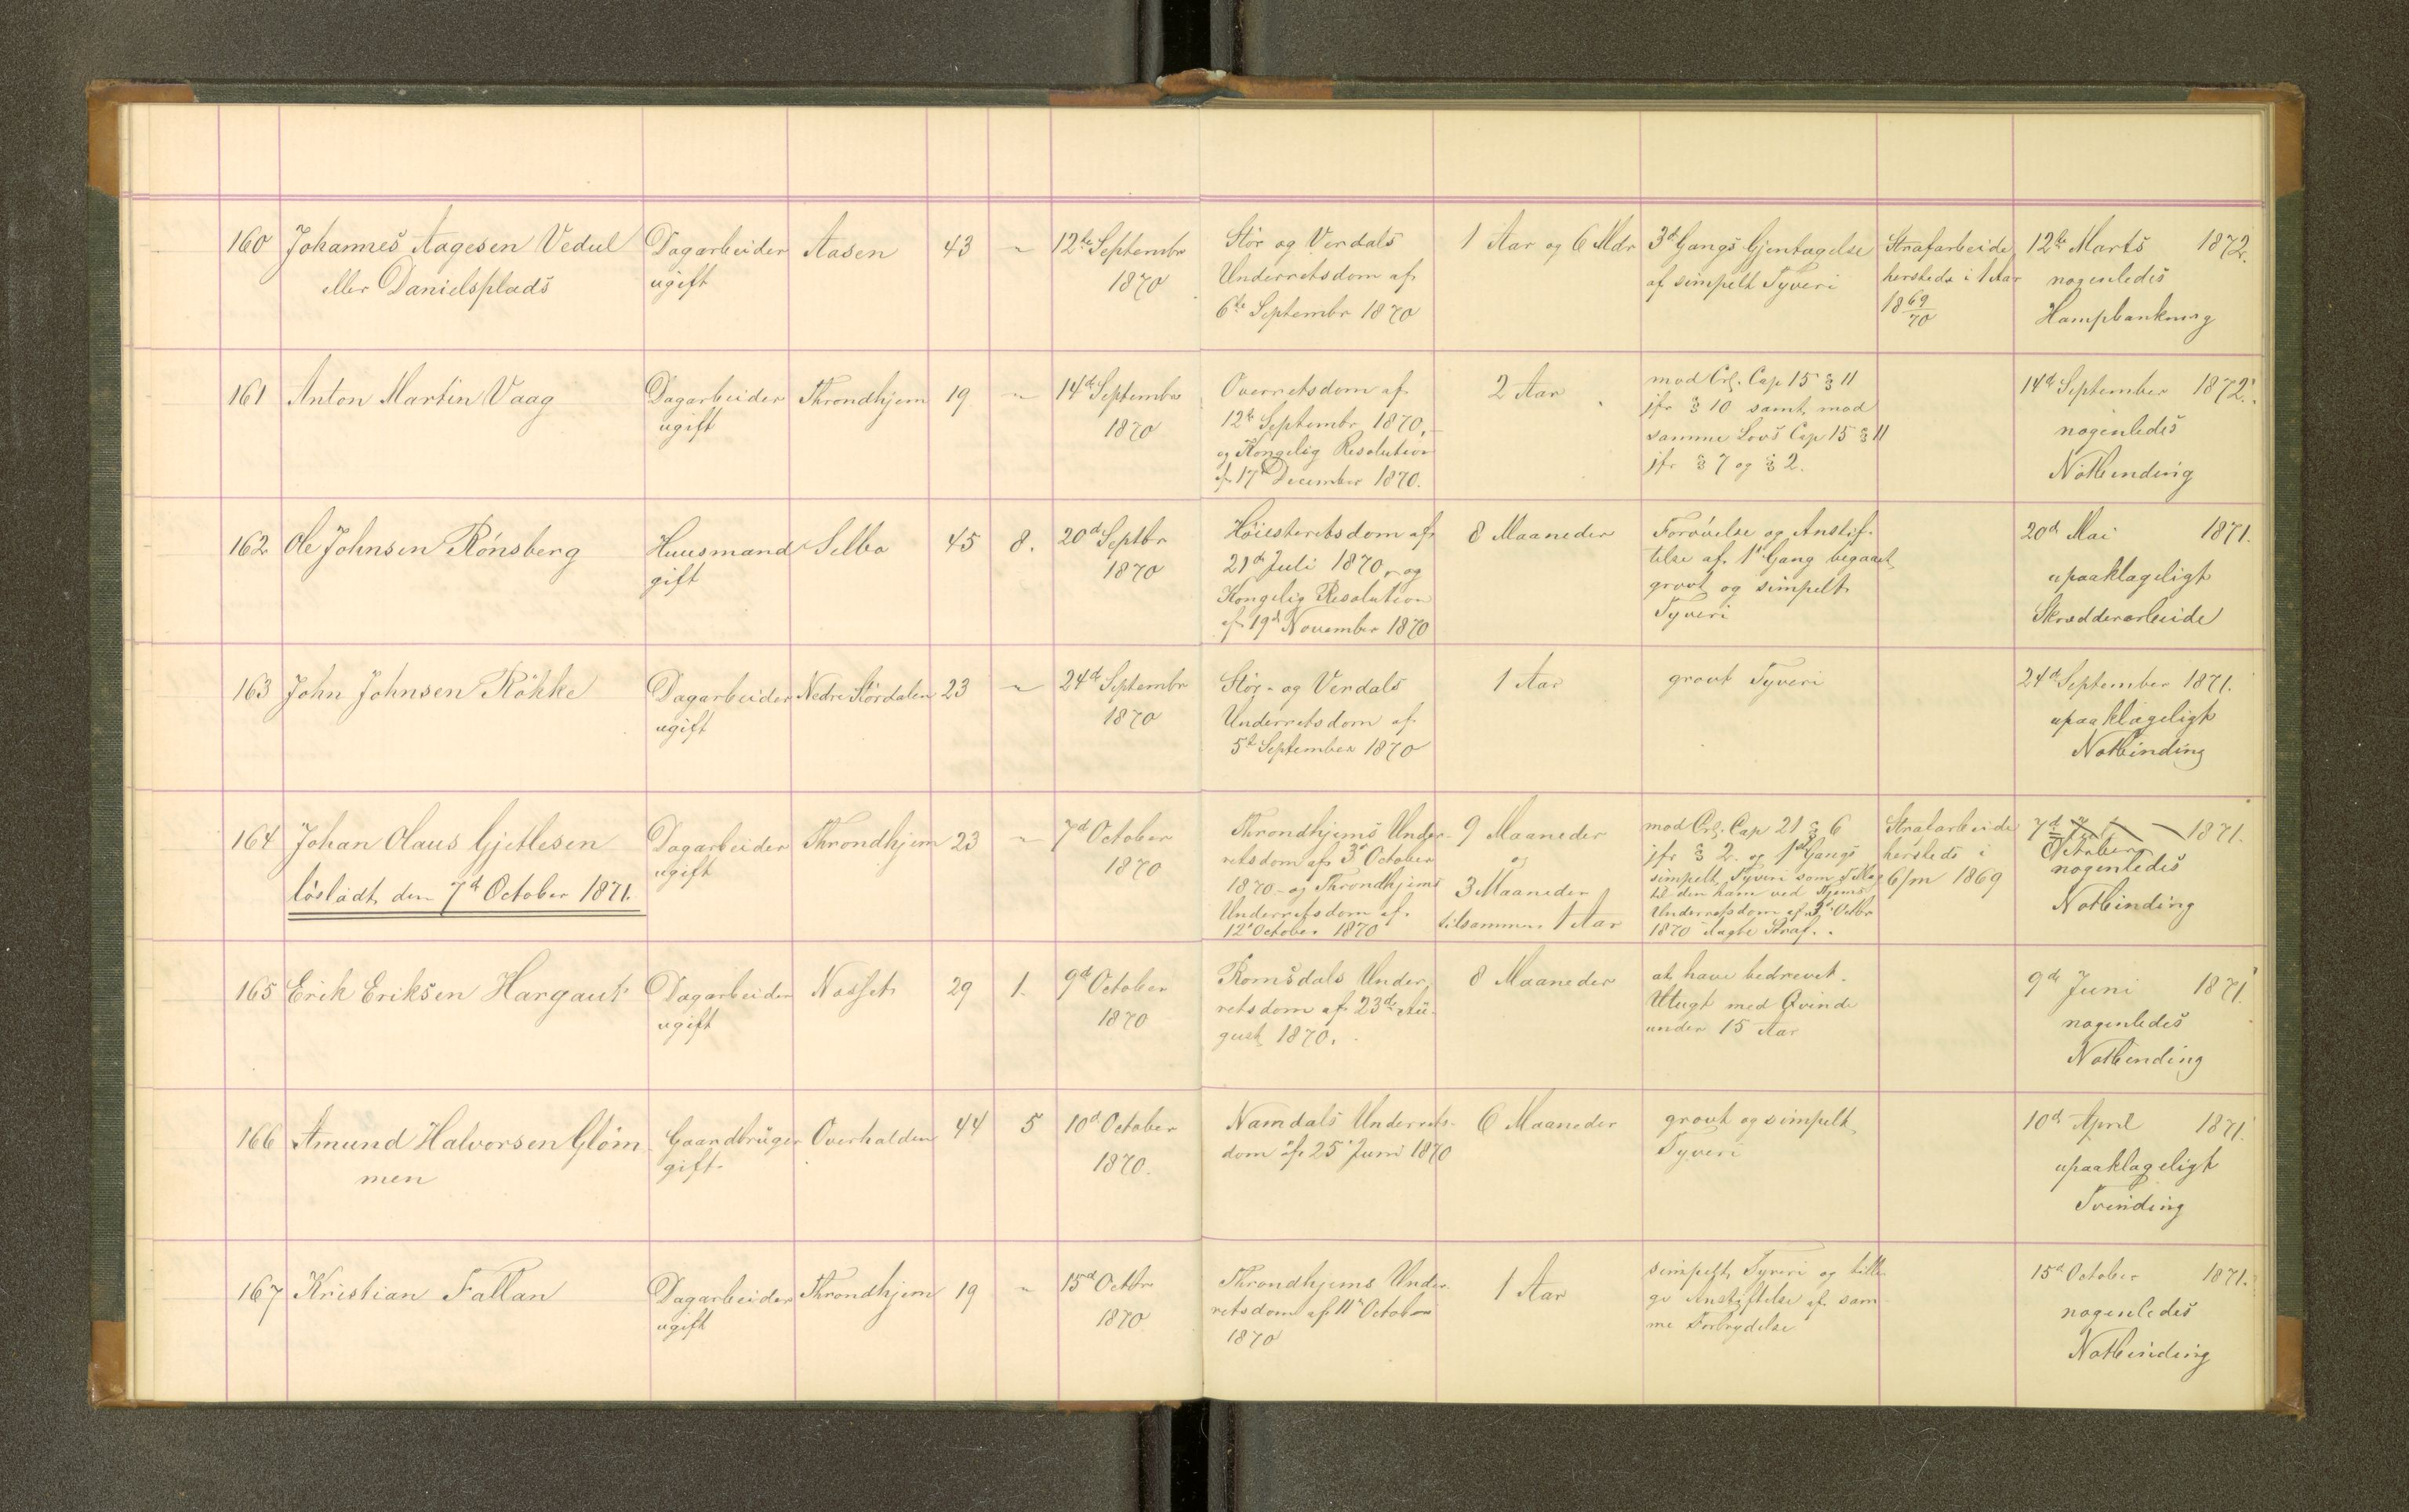 160 Johannes Aagesen Vedul Dagarbeider Aasen 43 " 12te Septembr Stör og Verdals 1 Aar og 6 Mdr 3d Gangs Gjentagelse Strafarbeide 12te Marts 1872.
eller Danielsplads ugift 1870 Underretsdom af af simpelt Tyveri hersteds i 1 Aar nogenledes
6te Septembr 1870 1869/70 Hampbankning
161 Anton Martin Vaag Dagarbeider Throndhjem 19 " 14de Septembr Overretsdom af 2 Aar mod Crl. Cap 15 § 11 14de September 1872.
ugift 1870 12te Septembr 1870, jfr § 10 samt mod nogenledes
og Kongelig Resolution samme Lovs Cap 15 § 11 Nötbinding
af 17de December 1870. jfr § 7 og § 2.
162 Ole Johnsen Rönsberg Huusmand Selbo 45 8. 20d Septbr Höiesteretsdom af 8 Maaneder Forövelse og Anstif- 20d Mai 1871.
gift 1870 21de Juli 1870, og telse af 1st Gang begaaet upaaklageligt
Kongelig Resolution grovt og simpelt Skrædderarbeide
af 19d November 1870 Tyveri
163 John Johnsen Rökke Dagarbeider Nedre Stördalen 23 " 24de Septembr Stör- og Verdals 1 Aar grovt Tyveri 24d September 1871.
ugift 1870 Underretsdom af upaaklageligt
5te September 1870 Notbinding
164 Johan Olaus Gjetlesen Dagarbeider Throndhjem 23 " 7d October Throndhjems Under- 9 Maaneder mod Crl. Cap 21 § 6 Strafarbeide 7d 1871.
lösladt den 7d October 1871. ugift 1870 retsdom af 3d October og jfr § 2 og 1st Gangs hersteds i October
1870 - og Throndhjems 3 Maaneder simpelt Tyveri som Tillæg 6/m 1869 nogenledes
Underretsdom af tilsammen 1 Aar til den ham ved Thjems Notbinding
12te October 1870 Underretsdom af 3d Octbr
1870 ilagte Straf.
165 Erik Eriksen Hargaut Dagarbeider Næsset 29 1. 9d October Romsdals Under- 8 Maaneder at have bedrevet 9de Juni 1871.
ugift 1870 retsdom af 23de Au- Utugt med Qvinde nogenledes
gust 1870. under 15 Aar Notbinding
166 Amund Halvorsen Glöm Gaardbruger Overhalden 44 5 10d October Namdals Underrets- 6 Maaneder grovt og simpelt 10d April 1871.
men gift 1870. dom af 25 Juni 1870 Tyveri upaaklageligt
Tvinding
167 Kristian Fallan Dagarbeider Throndhjem 19 " 15d Octbr Throndhjems Under- 1 Aar simpelt Tyveri og tilli- 15d October 1871.
ugift 1870 retsdom af 11te October ge Anstiftelse af sam nogenledes
1870 me Forbrydelse Notbinding